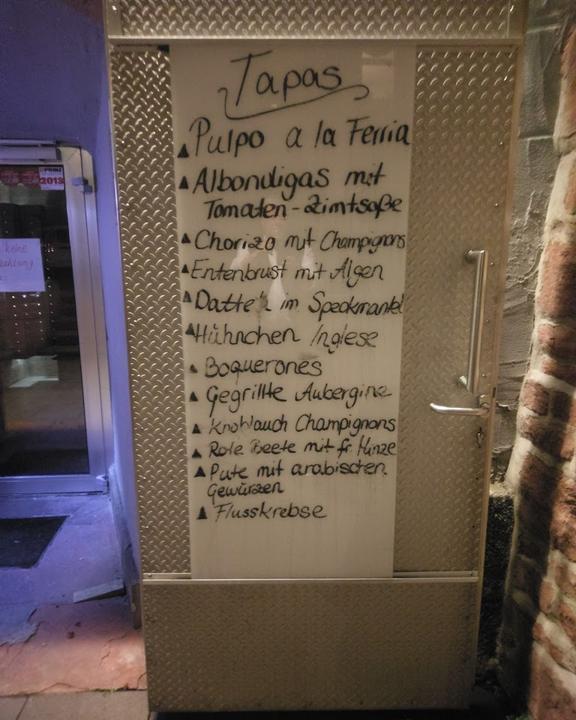 Tapas
Pulpo a la Ferria
Albondigas mit
Tomaten-Zimtsoße
Chorizo mit Champignons
Entenbrust mit Algen
Datteln im Speckmantel
Hühnchen Inglese
Boquerones
Gegrillte Aubergine
Knoblauch Champignons
Rote Beete mit fr. Minze
Pute mit arabischen
Gewürzen
Flusskrebse
PRINZ
2013
keine